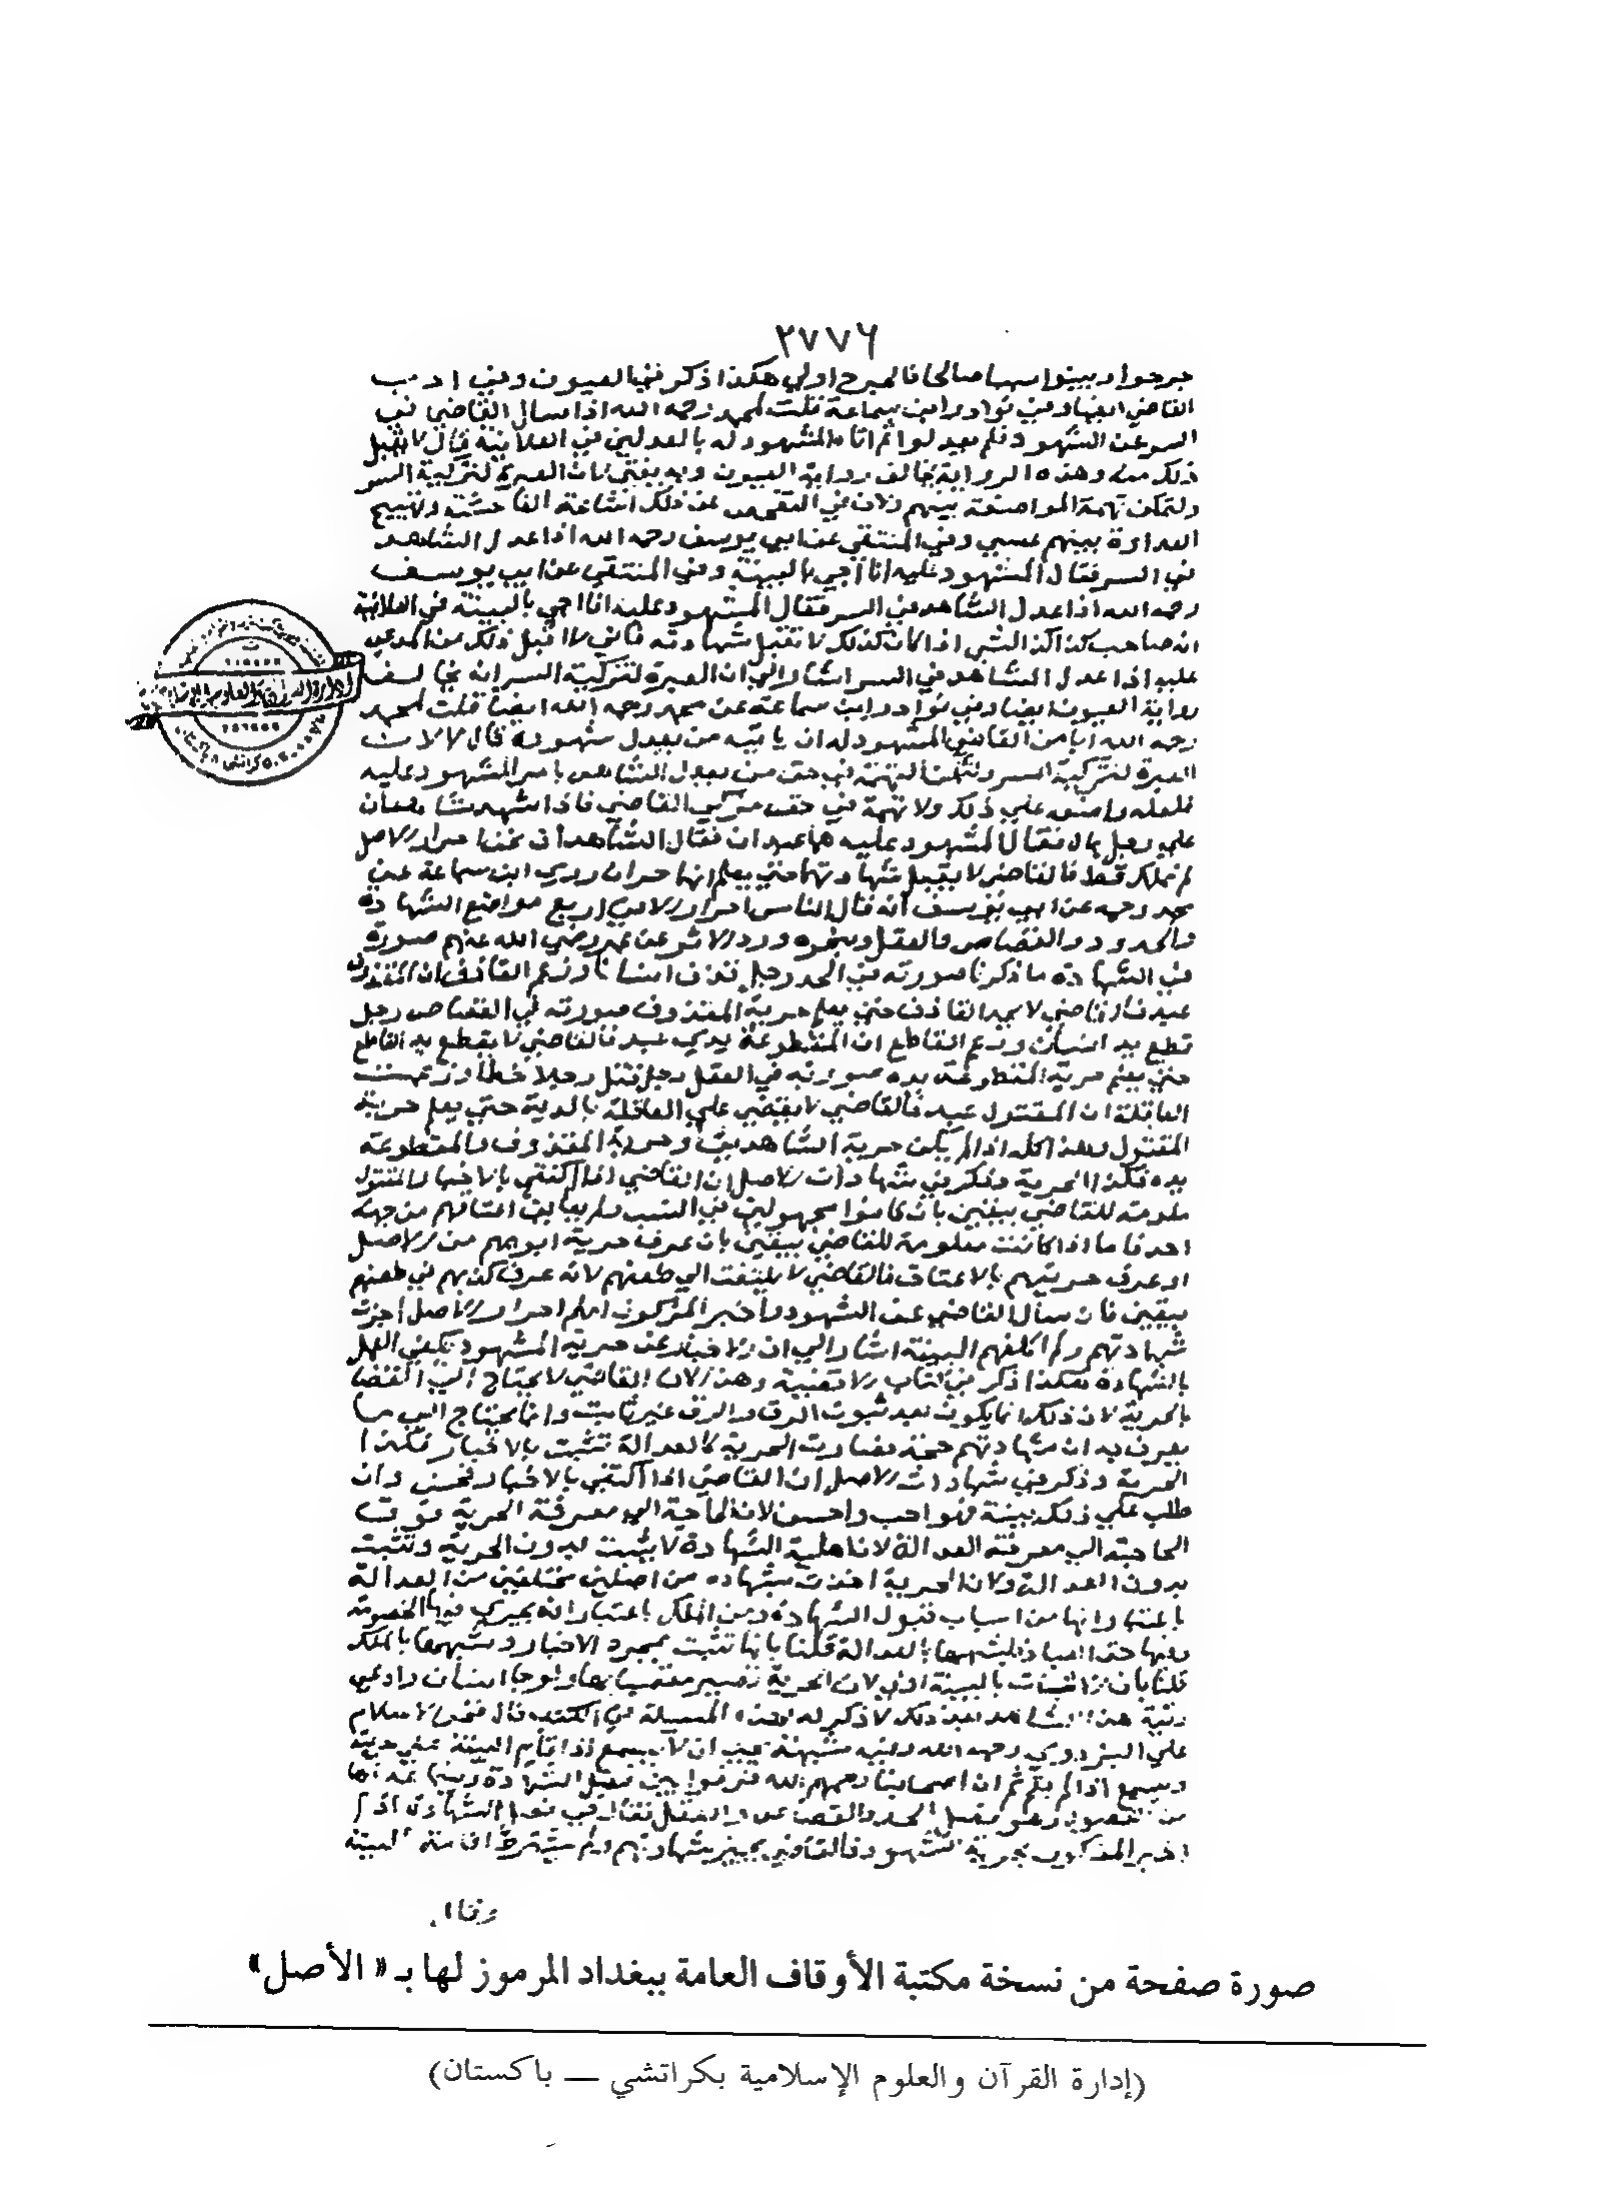 ٢٧٧٦
جرحوا وبينوا سببا صالحا فالجرح اولي هكذا ذكر في العيون وفي ادب
القاضي ايضا وفي نوادر ابن سماعة قلت لمحمد رحمه الله اذا سال القاضي في
السر عن الشهود فلم يعدلوا ثم اتا المشهود له بالعدلين في العلانية قال لا اقبل
ذلك منه وهذه الرواية تخالف رواية العيون وبه يفتي لان العبرة لتزكية السر
ولتمكن تهمة المواضعة بينهم ولان في التفحص عن ذلك اشاعة الفاحشة وتهييج
العداوة بينهم عسي وفي المنتقي عن ابي يوسف رحمه الله اذا عدل الشاهد
في السر فقال المشهود عليه انا اجي بالبينة وفي المنتقي عن ابي يوسف
رحمه الله اذا عدل الشاهد في السر فقال المشهود عليه انا اجي بالبينة في العلانية
انه صاحب كذا كذا الشي اذا كان كذلك لا تقبل شهادته فاني لا اقبل ذلك من المدعي
عليه اذا عدل الشاهد في السر اشار الي ان العبرة لتزكية السر انه يخالف
رواية العيون ايضا وفي نوادر ابن سماعة عن محمد رحمه الله ايضا قلت لمحمد
رحمه الله ايامن القاضي المشهود له ان ياتيه من يعدل شهوده قال لا لان
العبرة لتزكية السر ولتمكن التهمة في حق من يعدل الشاهد يامر المشهود عليه
فلعله واضعه علي ذلك ولا تهمة في حق مزكي القاضي فاذا شهد شاهدان
علي رجل بمال فقال المشهود عليه هما عبدان فقال الشاهدان نحن احرار الاصل
لم نملك قط فالقاضي لا يقبل شهادتهما حتي يعلم انهما حران روي ابن سماعة عن
محمد رحمه عن ابي يوسف انه قال الناس احرار الا في اربع مواضع الشهادة
والحدود والقصاص والعقل وبنحوه ورد الاثر عن عمر رضي الله عنهم صورة
في الشهادة ما ذكرنا صورته في الحد رجل قذف انسانا وزعم القاذف ان المقذوف
عبد فالقاضي لا يحد القاذف حتي يعلم حرية المقذوف صورته في القصاص رجل
قطع يد انسان وزعم القاطع ان المقطوعة يدي عبد فالقاضي لا يقطع يد القاطع
حتي يعلم حرية المقطوعة يده صورته في العقل رجل قتل رجلا خطا وزعمت
العاقلة ان المقتول عبد فالقاضي لا يقضي علي العاقلة بالدية حتي يعلم حرية
المقتول وهذا كله اذا لم يكن حرية الشاهدين وحرية المقذوف والمقطوعة
يده فكذا الحرية وذكر في شهادات الاصل ان القاضي اذا اكتفي بالاخبار والمقتول
معلومة للقاضي بيقين بان كانوا مجهولين في النسب ولم يعاين اعتاقهم من جهة
احد فاما اذا كانت معلومة للقاضي بيقين بان عرف حرية ابويهم من الاصل
او عرف حريتهم بالاعتاق فالقاضي لا يلتفت الي طعنهم لانه عرف كذبهم في طعنهم
بيقين فان سال القاضي عن الشهود واخبر المزكون انهم احرار الاصل اجزت
شهادتهم ولم اكلفهم البينة اشار الي ان الاخبار عن حرية المشهود يكفي للعمل
بالشهادة هكذا ذكر في كتاب الاقضية وهذا لان القاضي لا يحتاج الي القضا
بالحرية لان ذلك انما يكون بعد ثبوت الرق والرق غير ثابت وانما يحتاج الي ما
يعرف به ان شهادتهم حجة فصارت الحرية كالعدالة تثبت بالاخبار فكذا
الحرية وذكر في شهادات الاصل ان القاضي اذا اكتفي بالاخبار فحسن وان
طلب علي ذلك بينة فهو احب واحسن لان الحاجة الي معرفة الحرية فوق
الحاجة الي معرفة العدالة لان اهلية الشهادة لا يثبت بدون الحرية وتثبت
بدون العدالة ولان الحرية اخذت شبها من اصلين مختلفين من العدالة
باعتبار انها من اسباب قبول الشهادة ومن الملك باعتبار انه يجري فيها الخصومة
وانها حق العباد فلشبهها بالعدالة قلنا بانها تثبت بمجرد الاخبار ولشبهها بالملك
قلنا بان الاثبات بالبينة اولي لان الحرية تصير مقضيا بها ولو جا انسان وادعي
رقبة هذا الشاهد بعد ذلك لا ذكر له لهذه المسيلة في الكتب قال فخر الاسلام
علي البزدوي رحمه الله وفيه شبهة يجب ان لا يسمع اذا قام البينة علي حرية
ويسمع اذا لم يقم ثم ان اصحابنا رحمهم الله فرقوا بين فصل الشهادة وبين ما عداها
من الفصول وهو فصل الحد والقصاص والعقل فقال في فصل الشهادة اذا
اخبر المذكون بحرية الشهود فالقاضي يجيز شهادتهم ولم يشترط اقامة البينة
وقال
صورة صفحة من نسخة مكتبة الأوقاف العامة ببغداد المرموز لها بـ «الأصل»
(إدارة القرآن والعلوم الإسلامية بكراتشي — باكستان)